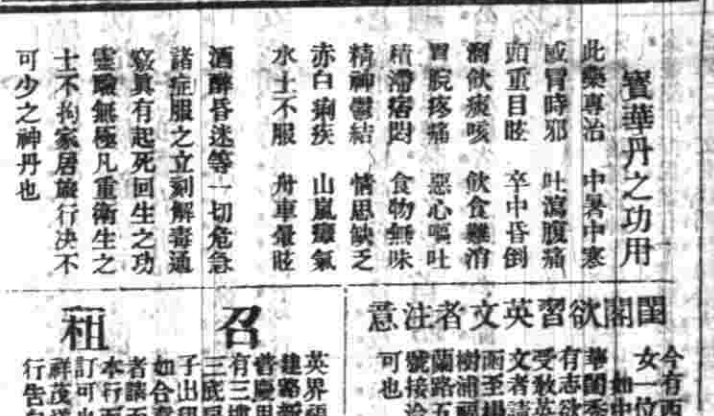 寶華丹之功用
此藥專治 中暑中寒
感冒時邪 吐瀉腹痛
頭重目眩 卒中昏倒
溜飲痰咳 飲食難消
胃脘疼痛 惡心嘔吐
積滯痞悶 食物無味
精神鬱結 情思缺乏
赤白痢疾 山嵐瘴氣
水土不服 舟車暈眩
酒醉昏迷等一切危急
諸症服之立刻解毒通
竅眞有起死回生之功
靈驗無極凡重衛生之
士不拘家居旅行决不
可少之神丹也
閨閣欲習英文者注意
今有西
女一位
如中
華閨秀
有志欲
受敎英
文者請
面至楊
樹浦
蘭路五
號接洽
可也
召租
英界福
建路新
普慶里
有三樓
三底房
子出租
如合意
者請
本行面
訂可也
祥茂洋
行告白